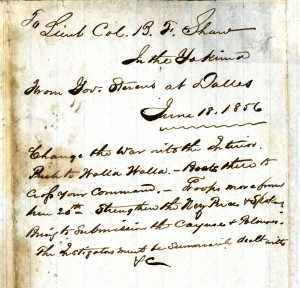 To
Lieut Col. B. F. Shaw
In the Yakima
From Gov. Stevens at Dalles
June 18. 1856
Change the War into the Interior.
Push to Walla Walla. - Boats there to
cross your Command. - Troops move from
here 20th - Strengthen the Nez Perces & Spokane
Bring to Submission the Cayuse & Palouse.
The Instigators must be Summarily dealt with
&C